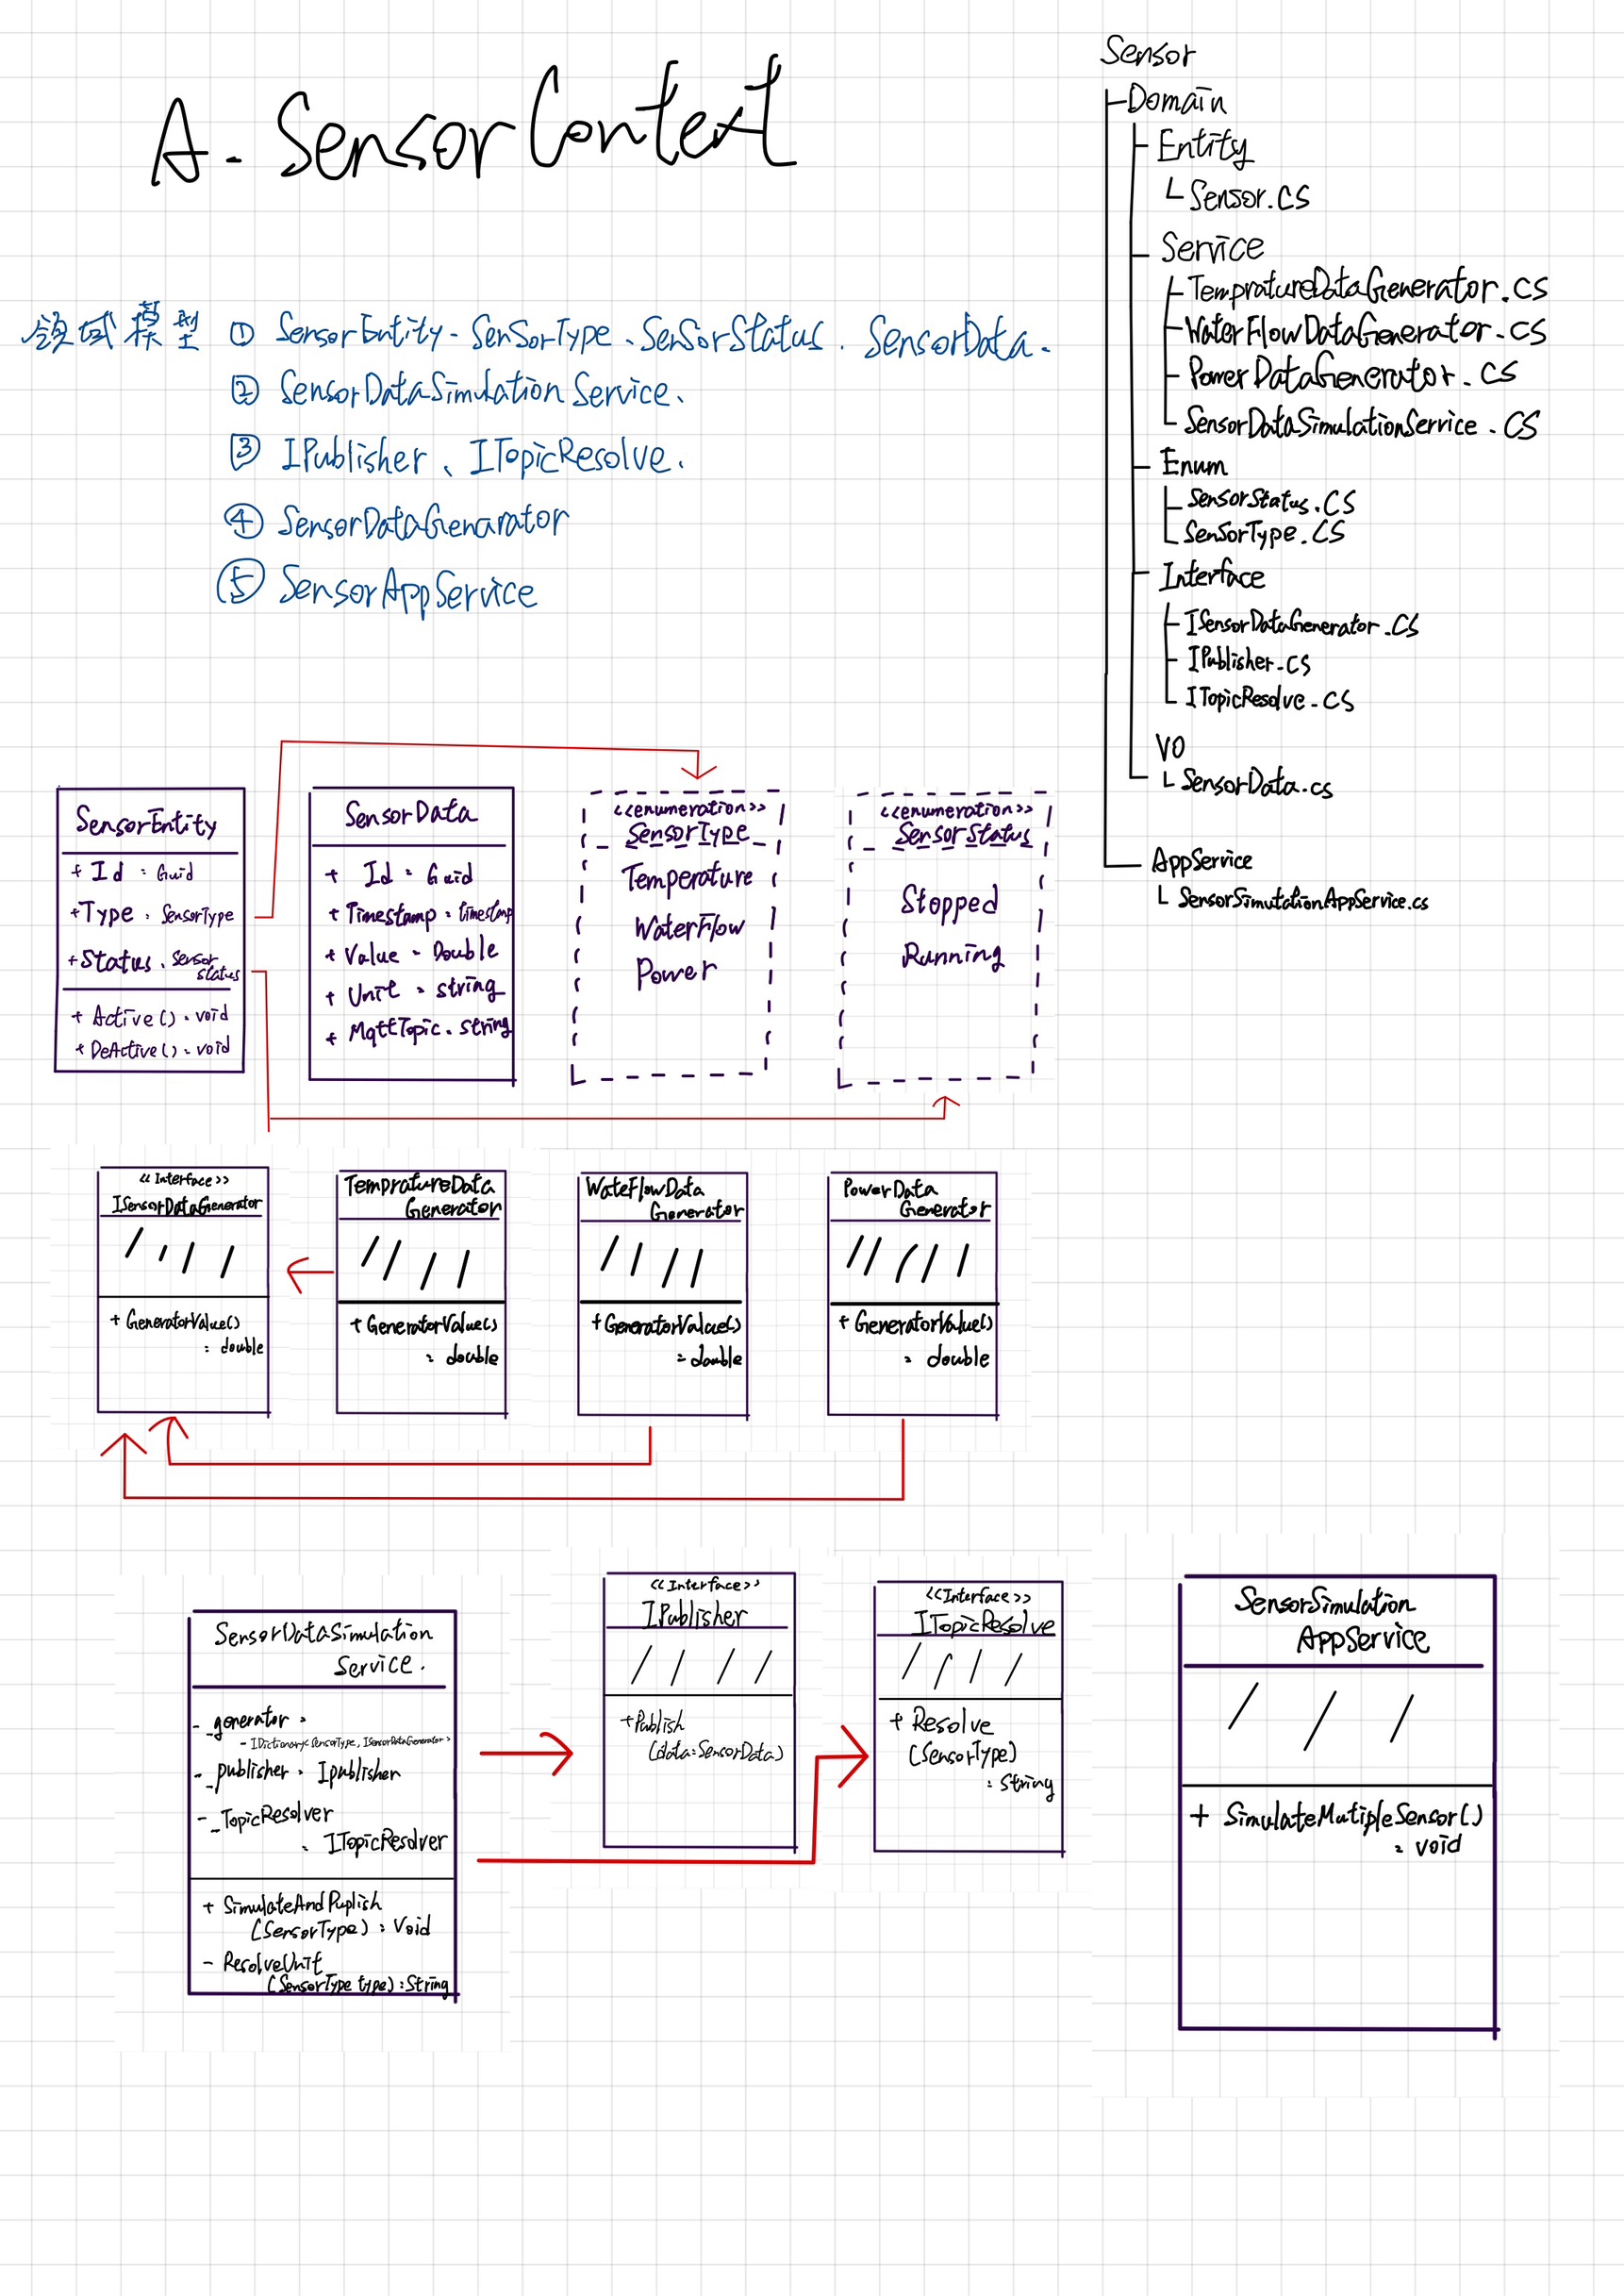 A. SensorContext
領域模型 ① SensorEntity - SensorType、SensorStatus. SensorData.
② SensorDataSimulation Service、
③ IPublisher、ITopicResolve.
④ SensorDataGenarator
⑤ SensorAppService
Sensor
Domain
Entity
Sensor.cs
Service
TempratureDataGenerator.cs
WaterFlowDataGenerator.cs
PowerDataGenerator.cs
SensorDataSimulationService.cs
Enum
SensorStatus.cs
SensorType.cs
Interface
ISensorDataGenerator.cs
IPublisher.cs
ITopicResolve.cs
VO
SensorData.cs
AppService
SensorSimutationAppService.cs
SensorEntity
+ Id : Guid
+Type : SensorType
+Status : Sensor
status
+ Active() : void
+ DeActive() : void
SensorData
+ Id : Guid
+Timestamp : timestamp
+ Value : Double
+ Unit : string
+ MqttTopic : string
<<enumeration>>
SensorType
Temperature
WaterFlow
Power
<<enumeration>>
SensorStatus
Stopped
Running
<<Interface>>
ISensorDataGenerator
+ GeneratorValue()
: double
TempratureData
Generator
+ GeneratorValue()
: double
WateFlowData
Generator
+GeneratorValue()
: double
PowerData
Generator
+ GeneratorValue()
: double
SensorDataSimulation
Service.
- _generator :
- IDictionary<SensorType, ISensorDataGenerator>
- _publisher : Ipublisher
- _TopicResolver
: ITopicResolver
+ SimulateAndPuplish
(SensorType) : Void
- ResolveUnit
(SensorType type) : String
<<Interface>>
IPublisher
+Publish
(data:SensorData)
<<Interface>>
ITopicResolve
+ Resolve
(SensorType)
: String
SensorSimulation
AppService
+ SimulateMutipleSensor()
: void